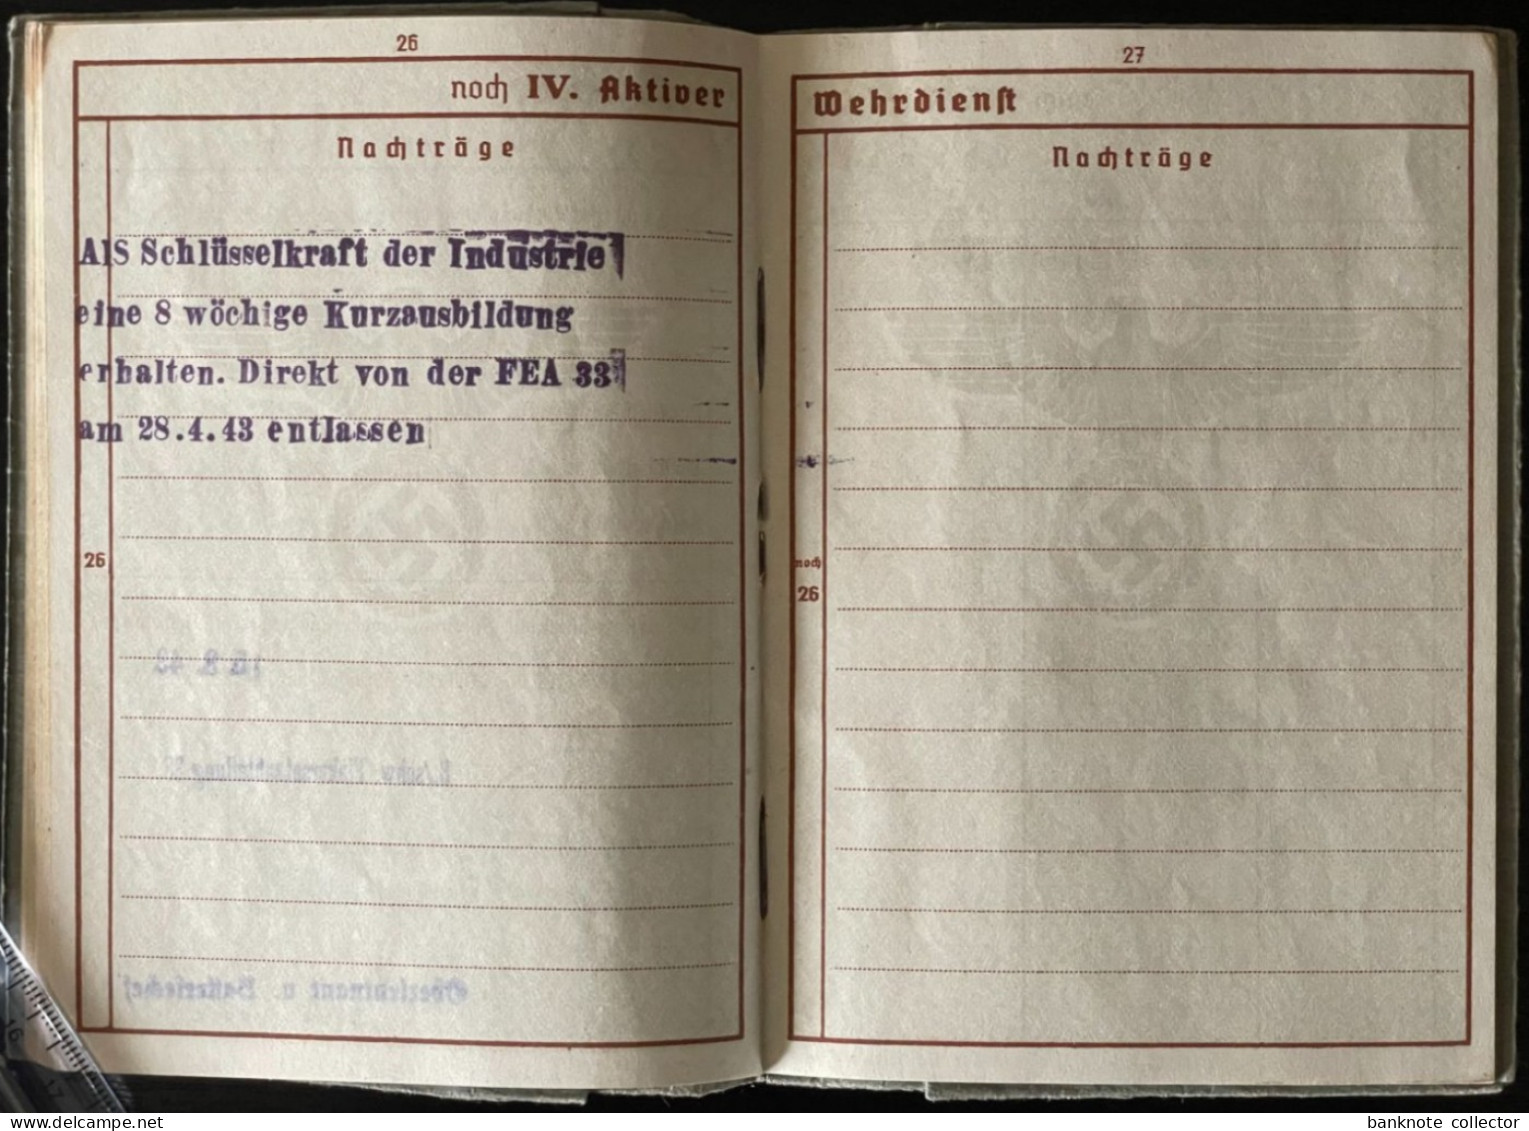 26
noch IV. Aktiver
Nachträge
Als Schlüsselkraft der Industrie
eine 8 wöchige Kurzausbildung
erhalten. Direkt von der FEA 33
am 28.4.43 entlassen
26
Oberleutnant u. Batteriechef
27
Wehrdienst
Nachträge
noch
26
16
17
banknote collector